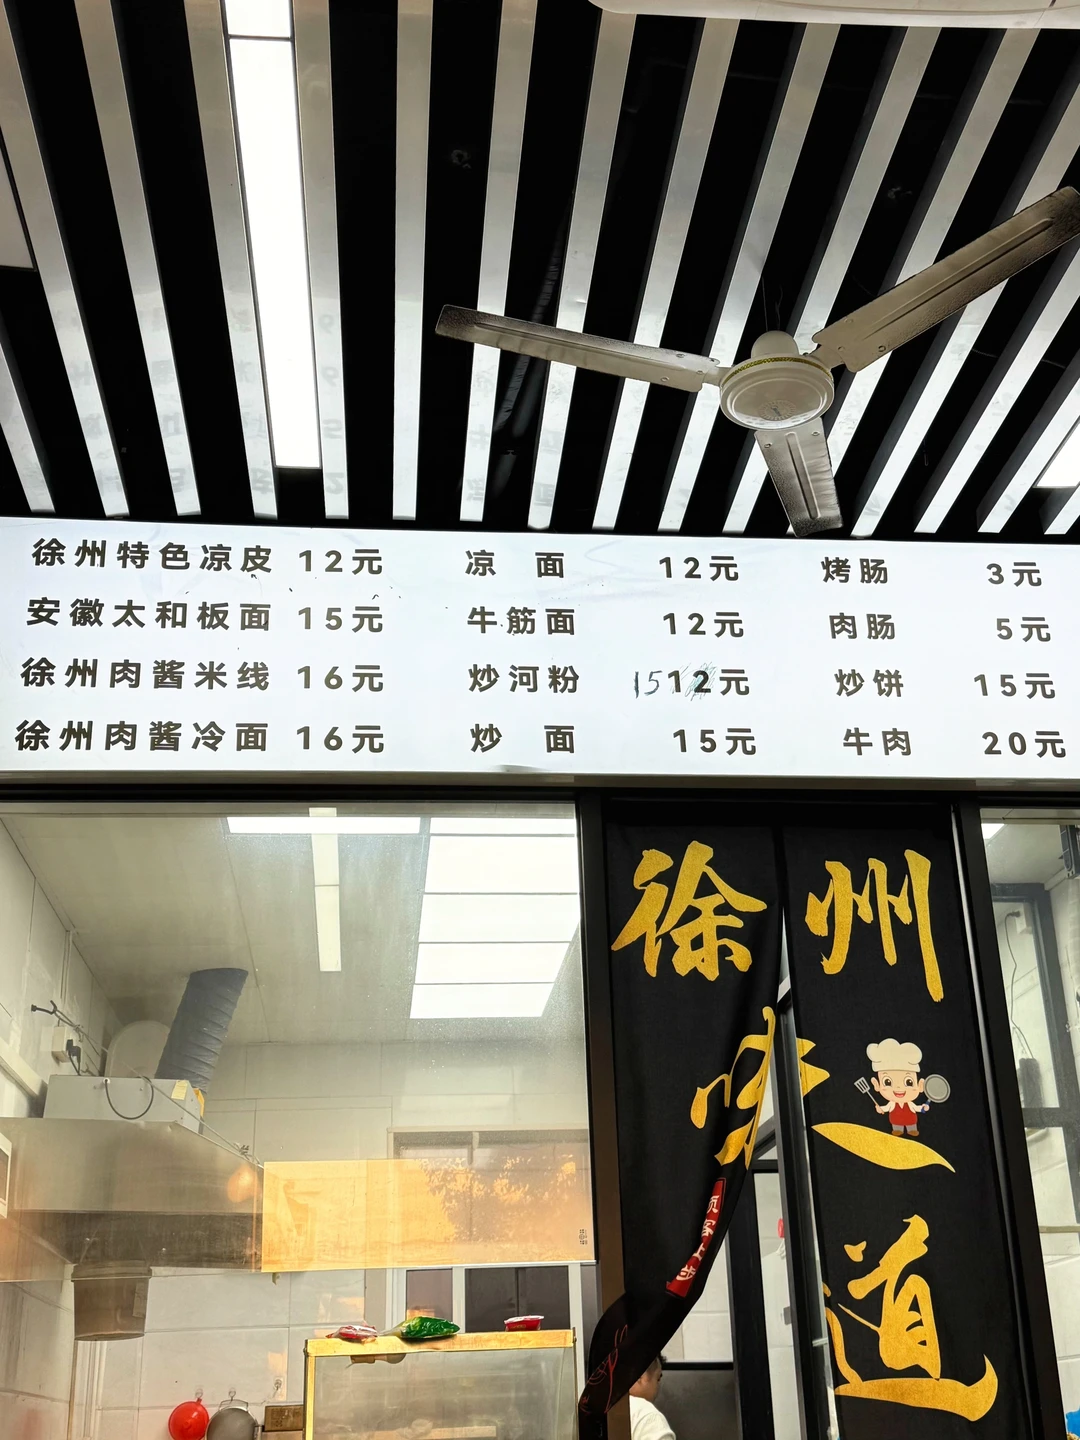 徐州特色凉皮 12元 凉 面 12元 烤肠 3元
安徽太和板面 15元 牛筋面 12元 肉肠 5元
徐州肉酱米线 16元 炒河粉 15 12元 炒饼 15元
徐州肉酱冷面 16元 炒 面 15元 牛肉 20元
徐州
味
道